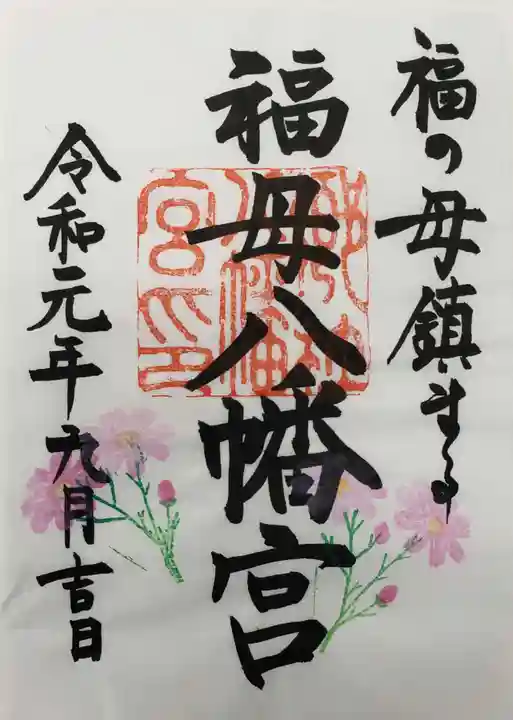 福の母鎮まる
福母八幡宮
令和元年九月吉日